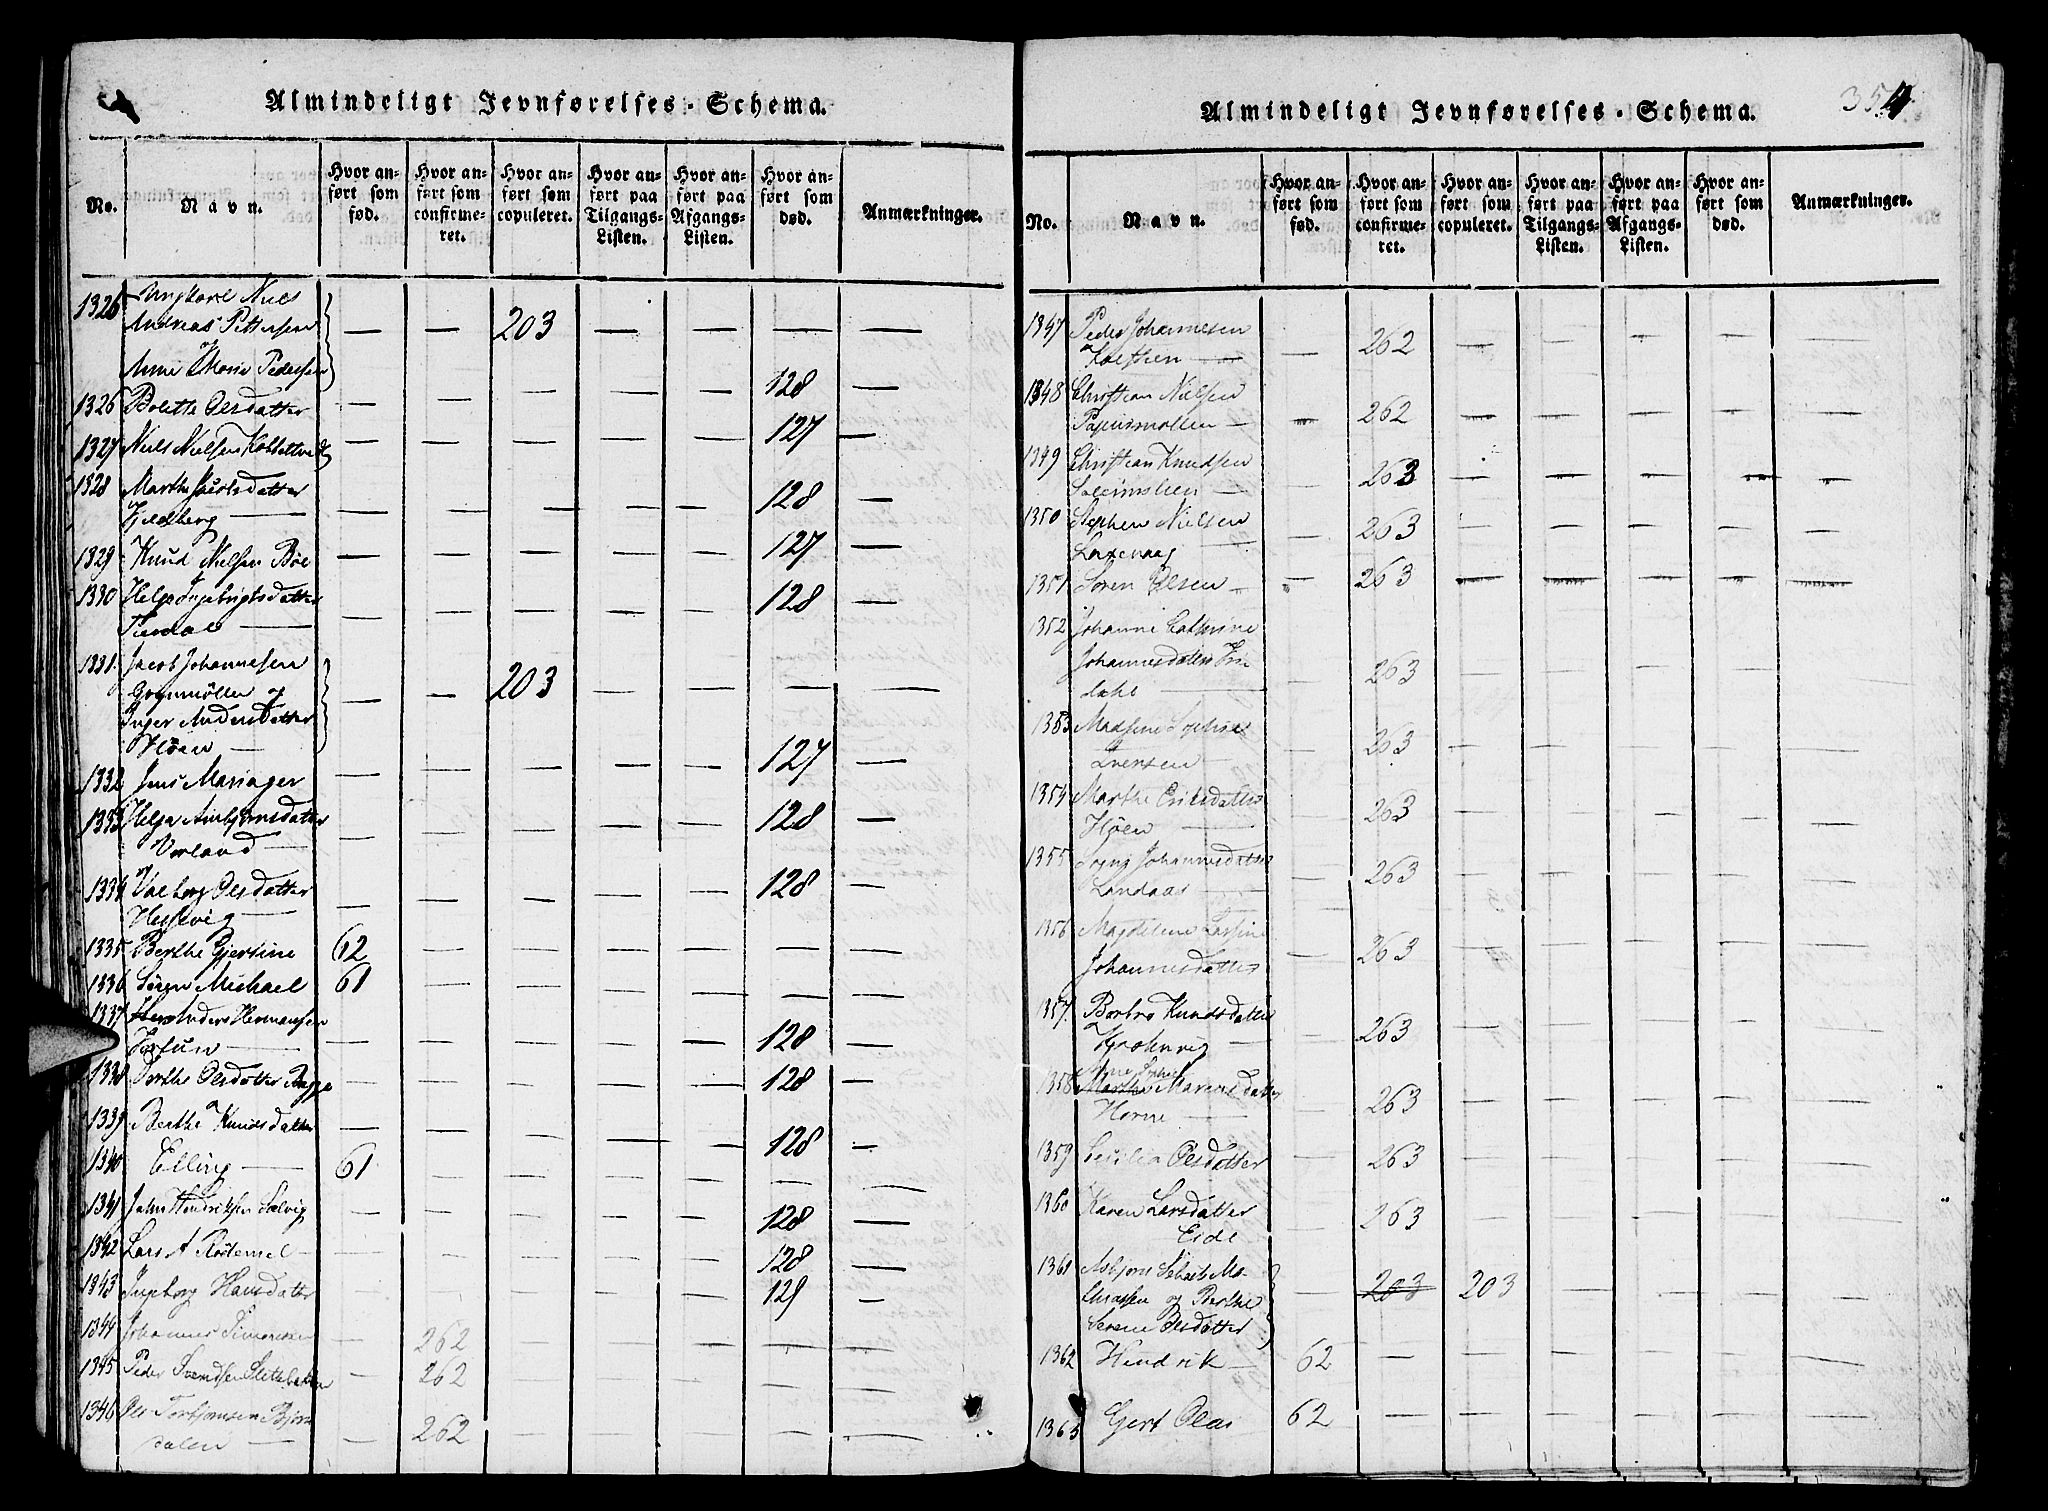 Almindeligt Jevnførelses-Schema.
No. Navn. Hvor anført som fød. Hvor anført som confirmeret. Hvor anført som copuleret. Hvor anført paa Tilgangs-Listen. Hvor anført paa Afgangs-Listen. Hvor anført som død. Anmærkninger.
1326 Ungkarl Niels
Andreas Pettersen — — 203 — — — —
og
Anne Marie Pedersen
1326 Bolette Olsdatter — — — — — 128 —
1327 Niels Nielsen — — — — — 127 —
1328 Marthe Jacobsdatter
Kjeldberg — — — — — — 128 —
1329 Knud Nielsen Böe — — — — — 127 —
1330 Helge Ingebrigtsdatter — — — — — 128 —
1331 Jacob Johannesen
og — — 203 — — — —
Inger Andersdatter
Höien —
1332 Jens Mariager — — — — — 127 —
1333 Helga Ambjørnsdatter
Vorland — — — — — — 128 —
1334 Valborg Olsdatter
— — — — — — 128 —
1335 Berthe Gjertine 62 — — — — — —
1336 Sören Michael 61 — — — — — —
1337 Anders Hermansen
— — — — — — 128 —
1338 Berthe Olsdatter Bagge — — — — — 128 —
1339 Berthe Knudsdatter — — — — — 128 —
1340 Elling — 61 — — — — — —
1341 John Hendriksen Sælvig — — — — — 128 —
1342 Lars A Rödemel — — — — — 128 —
1343 Ingborg Hansdatter — — — — — 129 —
1344 Johannes Simonsen — 262 — — — — —
1345 Peder Svendsen — 262 — — — — —
1346 Ole Torbjørnsen Bjørn
dalen — — 262 — — — — —
Almindeligt Jevnførelses-Schema.
354
No. Navn. Hvor anført som fød. Hvor anført som confirmeret. Hvor anført som copuleret. Hvor anført paa Tilgangs-Listen. Hvor anført paa Afgangs-Listen. Hvor anført som død. Anmærkninger.
1347 Peder Johannesen
— — 262 — — — — —
1348 Christian Nielsen
Papiirmøllen — — 262 — — — — —
1349 Christian Knudsen
— — 263 — — — — —
1350 Stephen Nielsen
Laxevaag — — 263 — — — — —
1351 Sören Olsen — — 263 — — — — —
1352 Johanne Cathrine
Johannesdatter
dahl — — 263 — — — — —
1353 Madsine Sophie
Iversen — — 263 — — — — —
1354 Marthe Eriksdatter
Höien — — 263 — — — — —
1355 Johannesdatter
Landaas — — 263 — — — — —
1356 Magdelene Lassine
Johannesdatter — 263 — — — — —
1357 Barbro Knudsdatter
— — 263 — — — — —
1358 Marensdatter
Horne — — 263 — — — — —
1359 Cecilia Olsdatter — 263 — — — — —
1360 Karen Larsdatter
Eide — 263 — — — — —
1361 Asbjørn
og Berthe — 203 203 — — — —
Serene Olsdatter
1362 Hendrik — 62 — — — — — —
1363 Gjert Olai 62 — — — — — —